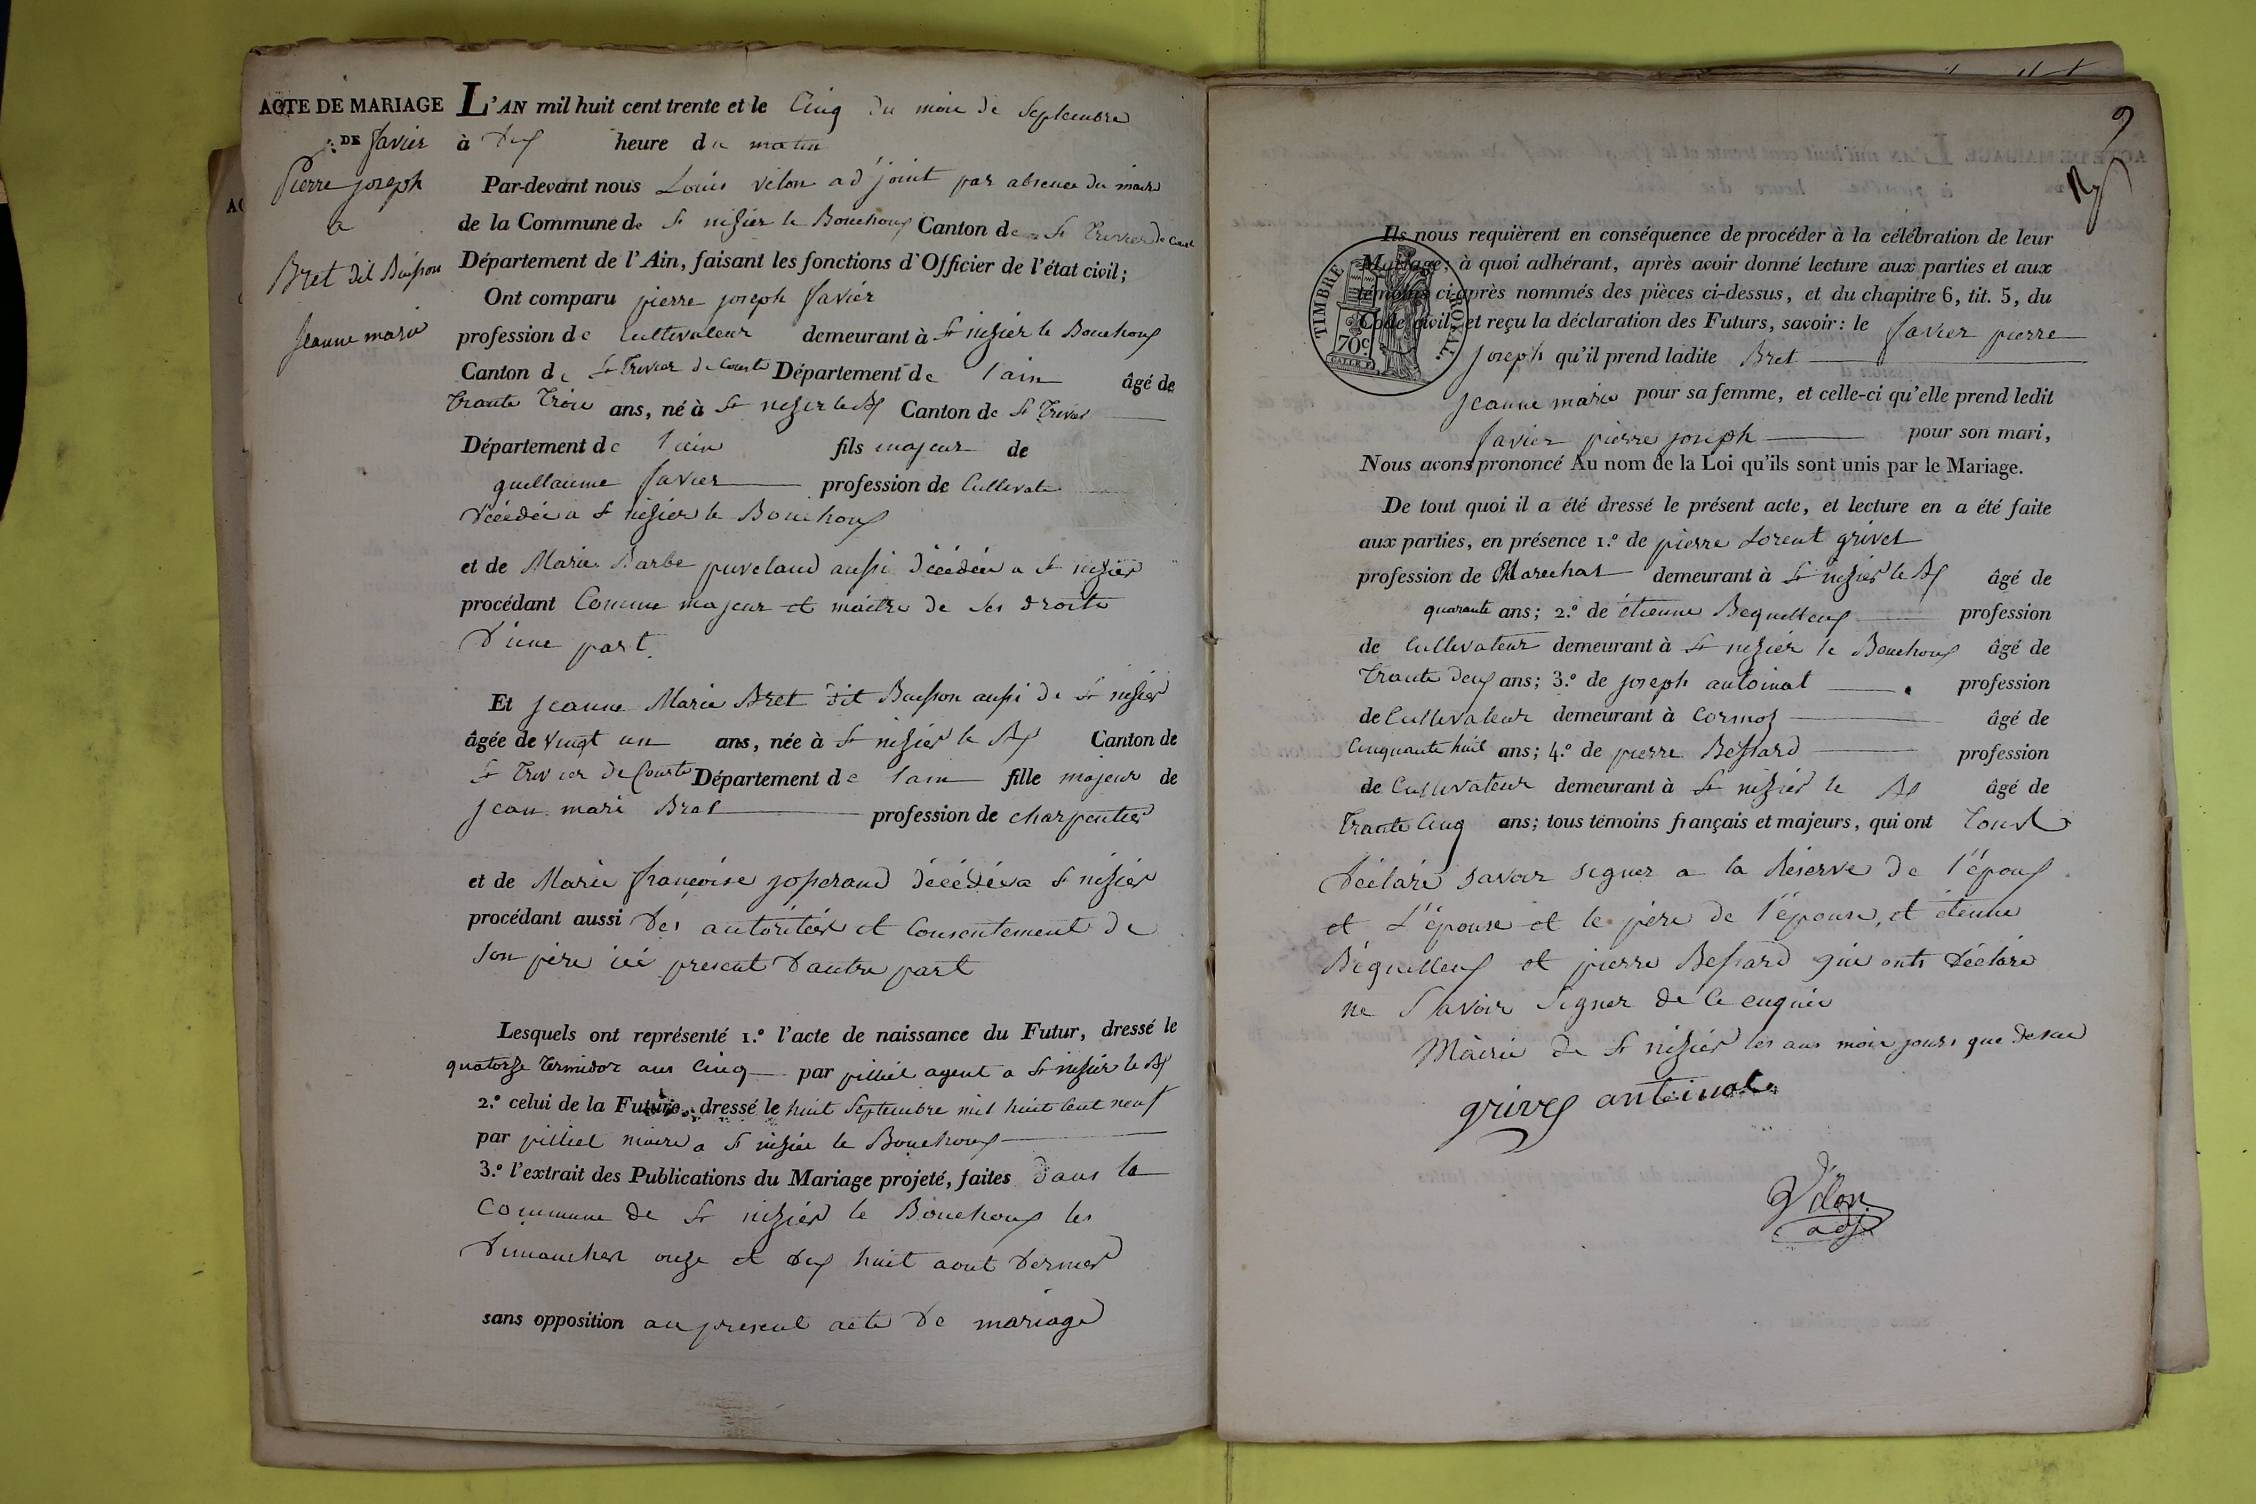 ACTE DE MARIAGE
DE favier
Pierre joseph
a
Bret dit Buisson
Jeanne marie
L'AN mil huit cent trente et le Cinq du mois de Septembre
à dix heure du matin
Par-devant nous Louis vélon ad'joint par absence du maire
de la Commune de St nizier le Bouchoux Canton de St Trivier de Court
Département de l'Ain, faisant les fonctions d'Officier de l'état civil;
Ont comparu pierre joseph favier
profession de Cultivateur demeurant à St nizier le Bouchoux
Canton de St Trivier de Courte Département de l'ain âgé de
Trante Trois ans, né à St nizier le Bx Canton de St Trivier
Département de l'ain fils majeur de
guillaume favier profession de Cultivate
décédée a St nizier le Bouchoux
et de Marie Barbe puveland aussi décédée a St nizier
procédant Comme majeur et maître de ses droits
d'une part
Et jeanne Marie Bret dit Buisson aussi de St nizier
âgée de vingt un ans, née à St nizier le Bx Canton de
St Trivier de Courte Département de l'ain fille majeur de
jean mari Bret profession de charpentier
et de Marie françoise josserand décédée a St nizier
procédant aussi des autoritées et Consentement de
son père ici present d'autre part
Lesquels ont représenté 1.º l'acte de naissance du Futur, dressé le
quatorze termidor ans Cinq par pilliet agent a St nizier le Bx
2.º celui de la Future, dressé le huit Septembre mil huit Cent neuf
par pilliet maire a St nizier le Bouchoux
3.º l'extrait des Publications du Mariage projeté, faites dans la
Commune de St nizier le Bouchoux les
dimanches onze et dix huit aout dernier
sans opposition au present acte de mariage
9
Ils nous requièrent en conséquence de procéder à la célébration de leur
Mariage; à quoi adhérant, après avoir donné lecture aux parties et aux
témoins ci-après nommés des pièces ci-dessus, et du chapitre 6, tit. 5, du
Code civil, et reçu la déclaration des Futurs, savoir: le favier pierre
joseph qu'il prend ladite Bret
jeanne marie pour sa femme, et celle-ci qu'elle prend ledit
favier pierre joseph pour son mari,
Nous avons prononcé Au nom de la Loi qu'ils sont unis par le Mariage.
TIMBRE ROYAL
70c
De tout quoi il a été dressé le présent acte, et lecture en a été faite
aux parties, en présence 1.º de pierre Lorent grivet
profession de Marechal demeurant à St nizier le Bx âgé de
quarante ans; 2.º de étienne Bequilleux profession
de Cultivateur demeurant à St nizier le Bouchoux âgé de
Trante deux ans; 3.º de joseph antoinat profession
de Cultivateur demeurant à Cormoz âgé de
Cinquante huit ans; 4.º de pierre Bessard profession
de Cultivateur demeurant à St nizier le Bx âgé de
Trante Cinq ans; tous témoins français et majeurs, qui ont Tous
déclaré savoir signer a la Réserve de l'époux
et L'épouse et le père de l'épouse, et étienne
Béquilleux et pierre Bessard qui onts déclaré
ne Savoir signer de Ce enquis
Mairie de St nizier les ans mois jours que dessue
grivet antoinat
Vélon
adj